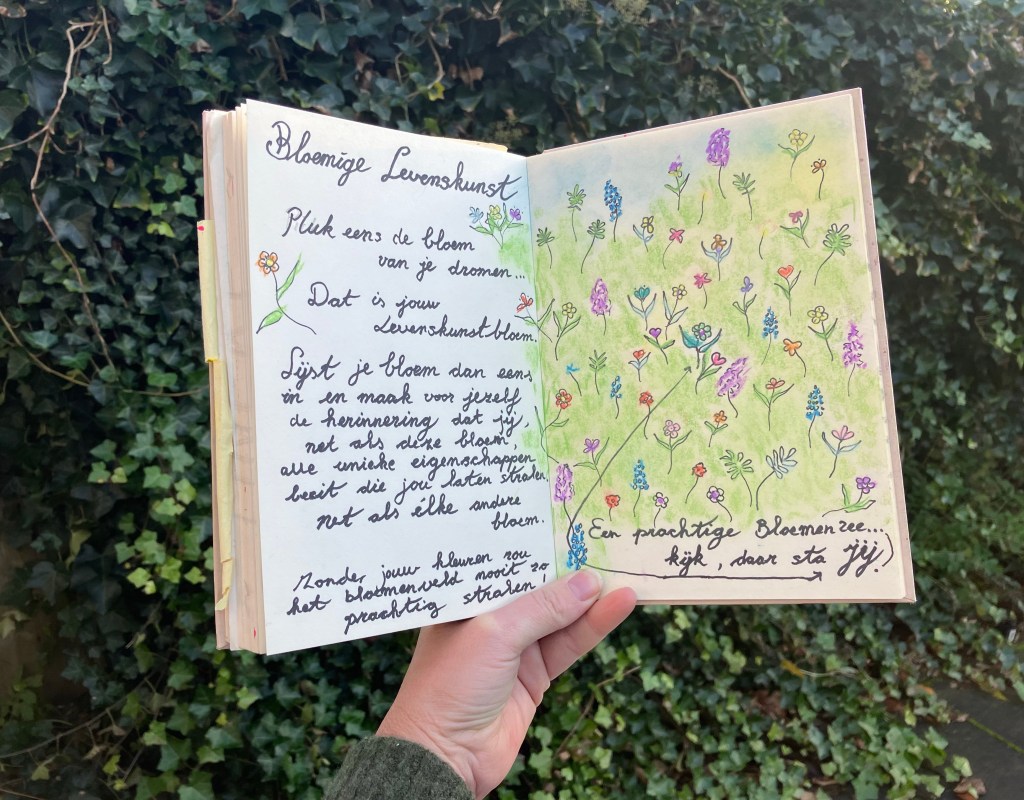 Bloemige Levenskunst
Pluk eens de bloem
van je dromen...
Dat is jouw
Levenskunstbloem.
Lijst je bloem dan eens
in en maak voor jezelf
de herinnering dat jij,
net als deze bloem,
alle unieke eigenschappen
bezit die jou laten stralen,
net als élke andere
bloem.
Zonder jouw kleuren zou
het bloemenveld nooit zo
prachtig stralen!
Een prachtige Bloemenzee...
kijk, daar sta jij!)